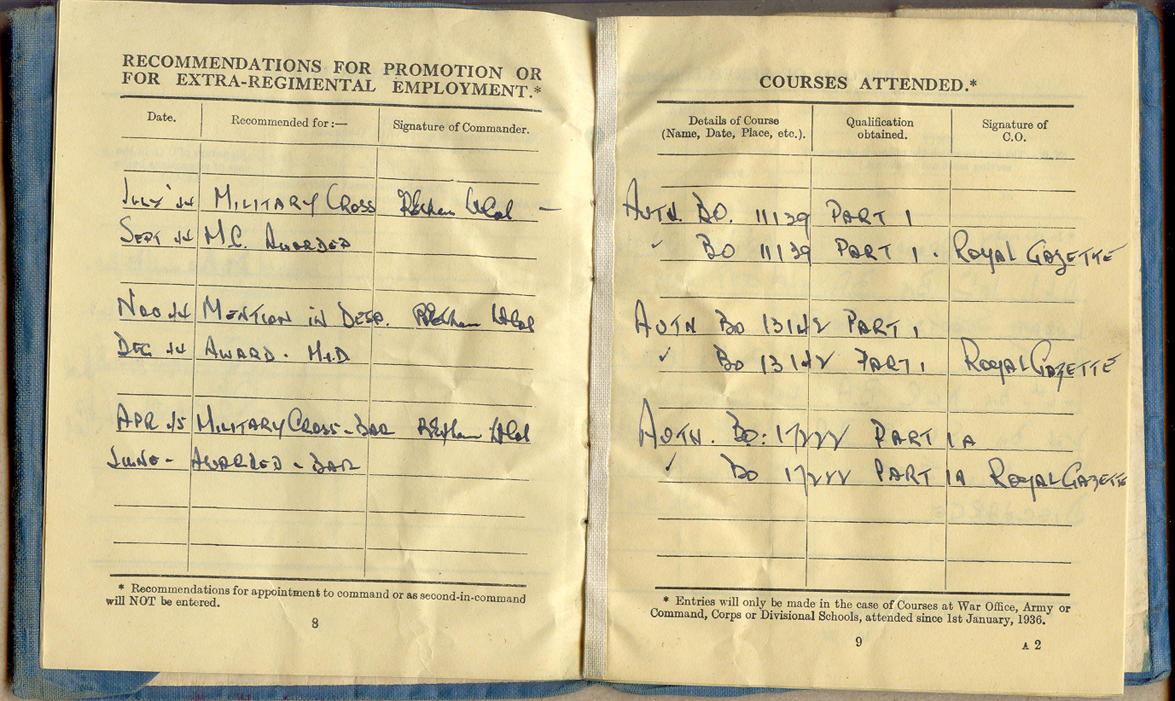 RECOMMENDATIONS FOR PROMOTION OR
FOR EXTRA-REGIMENTAL EMPLOYMENT.*
Date. Recommended for:— Signature of Commander.
July 44 MILITARY CROSS
SEPT 44 M.C. AWARDED
NOV 44 MENTION IN DESP.
DEC 44 AWARD - M.I.D
APR 45 MILITARY CROSS - BAR
JUNE - AWARDED - BAR
* Recommendations for appointment to command or as second-in-command
will NOT be entered.
8
COURSES ATTENDED.*
Details of Course Qualification Signature of
(Name, Date, Place, etc.). obtained. C.O.
AUTN. BO. 11139 PART 1
" BO 11139 PART 1. ROYAL GAZETTE
AUTN BO 13142 PART 1
" BO 13142 PART 1 ROYAL GAZETTE
AUTN. BO: 17222 PART 1A
" BO 17222 PART 1A ROYAL GAZETTE
* Entries will only be made in the case of Courses at War Office, Army or
Command, Corps or Divisional Schools, attended since 1st January, 1936.
9
A 2